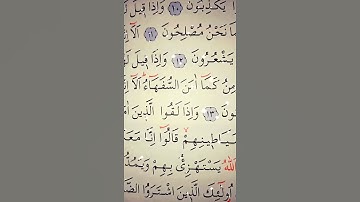 ا يَكْذِبُونَ ﴿١٠﴾ وَاِذَا قِيلَ لَ
مَا نَحْنُ مُصْلِحُونَ ﴿١١﴾ اَلَٓا اِ
يَشْعُرُونَ ﴿١٢﴾ وَاِذَا قِيلَ لَهُ
مِنُ كَمَٓا اٰمَنَ السُّفَهَٓاءُ اَلَٓا اِنَّ
ونَ ﴿١٣﴾ وَاِذَا لَقُوا الَّذِينَ اٰمَ
شَيَاطِينِهِمْ قَالُٓوا اِنَّا مَعَ
اَللّٰهُ يَسْتَهْزِئُ بِهِمْ وَيَمُدُّ
اُولٰٓئِكَ الَّذِينَ اشْتَرَوُا الضَّ